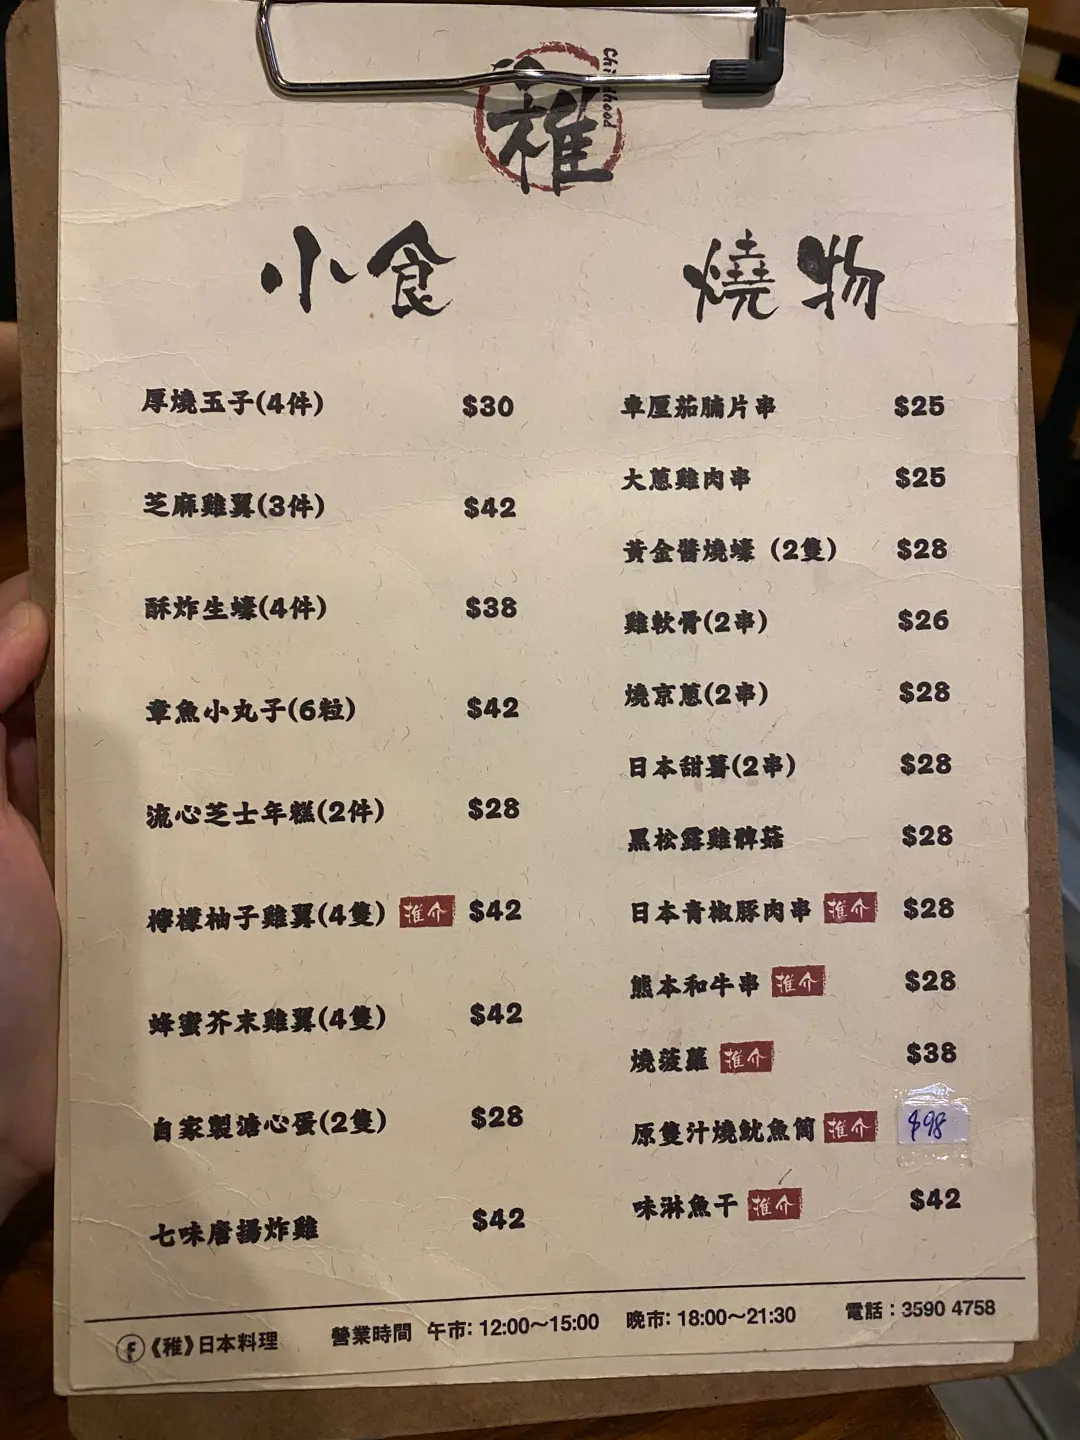 稚
Childhood
小食
厚燒玉子(4件) $30
芝麻雞翼(3件) $42
酥炸生蠔(4件) $38
章魚小丸子(6粒) $42
流心芝士年糕(2件) $28
檸檬柚子雞翼(4隻) 推介 $42
蜂蜜芥末雞翼(4隻) $42
自家製溏心蛋(2隻) $28
七味唐揚炸雞 $42
燒物
車厘茄腩片串 $25
大蔥雞肉串 $25
黃金醬燒蠔 (2隻) $28
雞軟骨(2串) $26
燒京蔥(2串) $28
日本甜薯(2串) $28
黑松露雞髀菇 $28
日本青椒豚肉串 推介 $28
熊本和牛串 推介 $28
燒菠蘿 推介 $38
原隻汁燒魷魚筒 推介 $98
味淋魚干 推介 $42
f 《稚》日本料理 營業時間 午市: 12:00～15:00 晚市: 18:00～21:30 電話：3590 4758